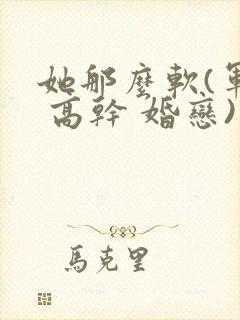 她那麼軟(軍
高幹 婚戀)
馬克里